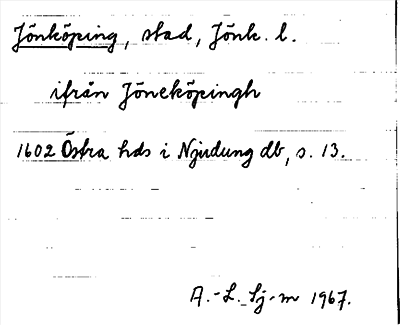 Jönköping, stad, Jönk. l.
ifrån Jöneköpingh
1602 Östra hds i Njudung db, s. 13.
A.-L. Sj-m 1967.